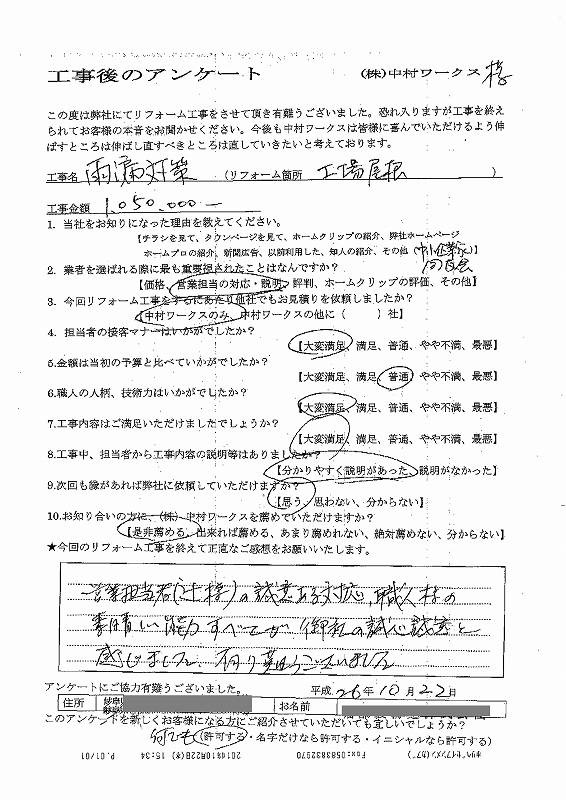 工事後のアンケート (株)中村ワークス 様
この度は弊社にてリフォーム工事をさせて頂き有難うございました。恐れ入りますが工事を終え
られてお客様の本音をお聞かせください。今後も中村ワークスは皆様に喜んでいただけるよう伸
ばすところは伸ばし直すべきところは直していきたいと考えております。
工事名 雨漏対策 (リフォーム箇所 工場屋根 )
工事金額 1,050,000ー
1. 当社をお知りになった理由を教えてください。
【チラシを見て、タウンページを見て、ホームクリップの紹介、弊社ホームページ
ホームプロの紹介、新聞広告、以前利用した、知人の紹介、その他(中小企業家)】
同友会
2. 業者を選ばれる際に最も重要視されたことはなんですか?
【価格、営業担当の対応・説明、評判、ホームクリップの評価、その他】
3. 今回リフォーム工事をするにあたり他社でもお見積りを依頼しましたか?
【中村ワークスのみ、中村ワークスの他に( )社】
4. 担当者の接客マナーはいかがでしたか?
【大変満足、満足、普通、やや不満、最悪】
5.金額は当初の予算と比べていかがでしたか?
【大変満足、満足、普通、やや不満、最悪】
6.職人の人柄、技術力はいかがでしたか?
【大変満足、満足、普通、やや不満、最悪】
7.工事内容はご満足いただけましたでしょうか?
【大変満足、満足、普通、やや不満、最悪】
8.工事中、担当者から工事内容の説明等はありましたか?
【分かりやすく説明があった、説明がなかった】
9.次回も縁があれば弊社に依頼していただけますか?
【思う、思わない、分からない】
10.お知り合いの方に、(株)中村ワークスを薦めていただけますか?
【是非薦める、出来れば薦める、あまり薦めれない、絶対薦めない、分からない】
★今回のリフォーム工事を終えて正直なご感想をお願いいたします。
営業担当者(辻様)の誠意ある対応、職人様の
素晴しい能力すべてが御社の誠心誠意と
感じました、有り難うございました
アンケートにご協力有難うございました。 平成 26年 10月 22日
住所 お名前
このアンケートを新しくお客様になる方にご紹介させていただいても宜しいでしょうか?
何でも(許可する・名字だけなら許可する・イニシャルなら許可する)
P.01/01 2014年10月22日(水) 15:34 Fax:0583832970